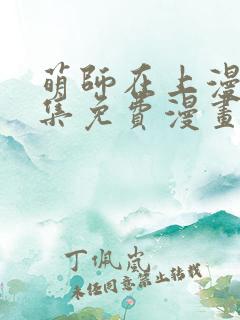 萌师在上漫
集免費漫畫
丁佩岚
未经同意禁止转载